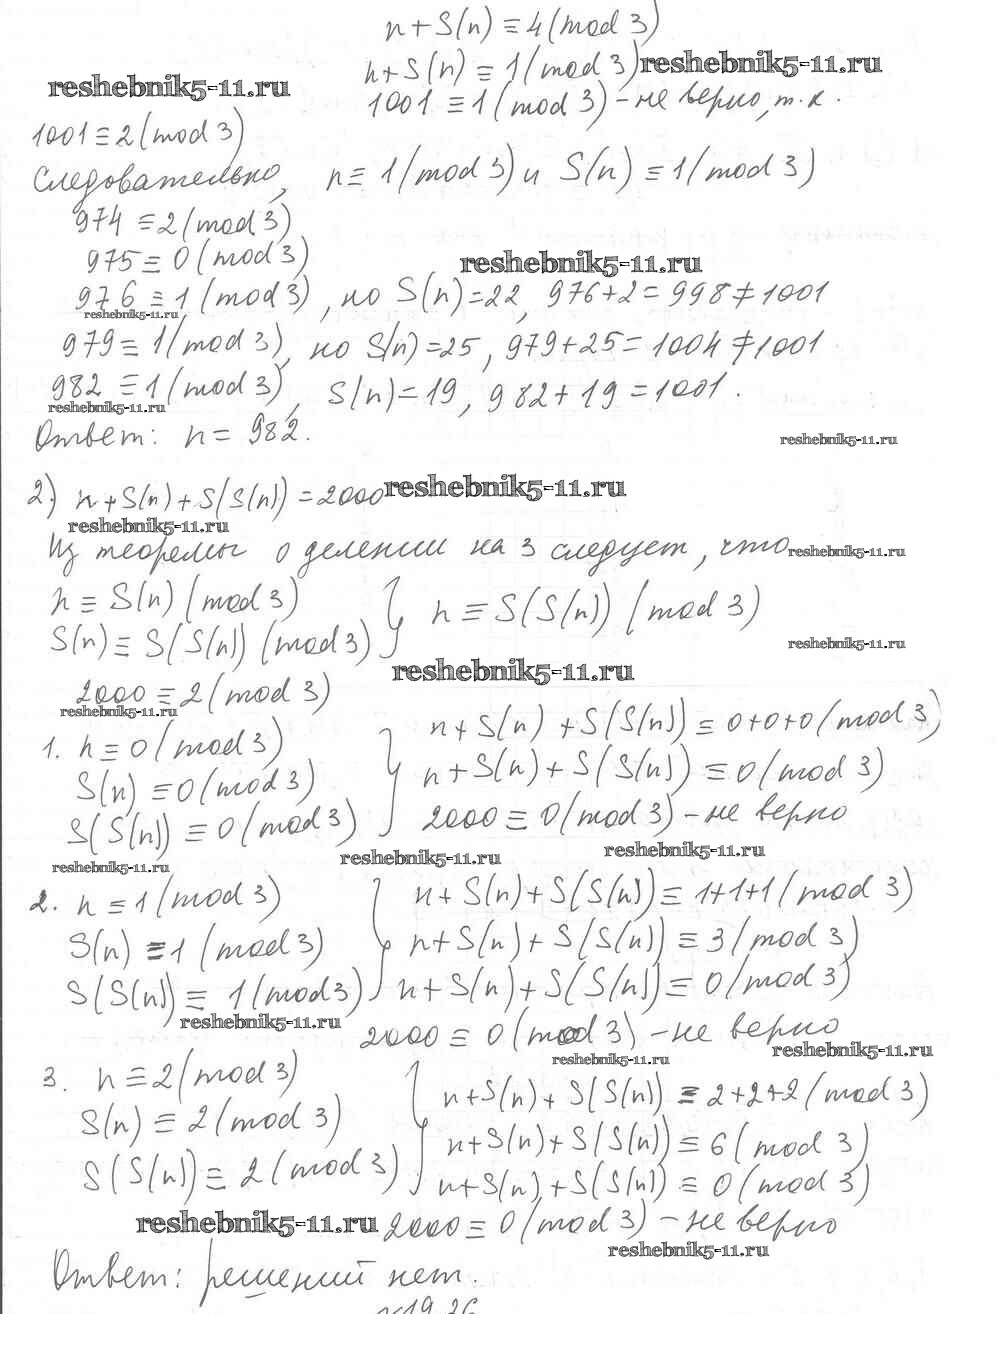 n+S(n) ≡ 4 (mod 3)
n+S(n) ≡ 1 (mod 3) reshebnik5-11.ru
reshebnik5-11.ru
1001 ≡ 1 (mod 3) – не верно, т.к.
1001 ≡ 2 (mod 3)
Следовательно, n ≡ 1 (mod 3) и S(n) ≡ 1 (mod 3)
974 ≡ 2 (mod 3)
975 ≡ 0 (mod 3)
reshebnik5-11.ru
976 ≡ 1 (mod 3), но S(n)=22, 976+2=998≠1001
reshebnik5-11.ru
979 ≡ 1 (mod 3), но S(n)=25, 979+25=1004≠1001
982 ≡ 1 (mod 3), S(n)=19, 982+19=1001.
reshebnik5-11.ru
Ответ: n = 982.
reshebnik5-11.ru
2) n+S(n)+S(S(n))=2000 reshebnik5-11.ru
reshebnik5-11.ru
Из теоремы о делении на 3 следует, что
reshebnik5-11.ru
n ≡ S(n) (mod 3)
S(n) ≡ S(S(n)) (mod 3) } n ≡ S(S(n)) (mod 3)
reshebnik5-11.ru
reshebnik5-11.ru
2000 ≡ 2 (mod 3)
reshebnik5-11.ru
1. n ≡ 0 (mod 3) } n+S(n)+S(S(n)) ≡ 0+0+0 (mod 3)
S(n) ≡ 0 (mod 3) n+S(n)+S(S(n)) ≡ 0 (mod 3)
S(S(n)) ≡ 0 (mod 3) 2000 ≡ 0 (mod 3) – не верно
reshebnik5-11.ru reshebnik5-11.ru reshebnik5-11.ru
2. n ≡ 1 (mod 3) } n+S(n)+S(S(n)) ≡ 1+1+1 (mod 3)
S(n) ≡ 1 (mod 3) n+S(n)+S(S(n)) ≡ 3 (mod 3)
S(S(n)) ≡ 1 (mod 3) n+S(n)+S(S(n)) ≡ 0 (mod 3)
reshebnik5-11.ru
2000 ≡ 0 (mod 3) – не верно
reshebnik5-11.ru reshebnik5-11.ru
3. n ≡ 2 (mod 3) } n+S(n)+S(S(n)) ≡ 2+2+2 (mod 3)
S(n) ≡ 2 (mod 3) n+S(n)+S(S(n)) ≡ 6 (mod 3)
S(S(n)) ≡ 2 (mod 3) n+S(n)+S(S(n)) ≡ 0 (mod 3)
reshebnik5-11.ru 2000 ≡ 0 (mod 3) – не верно
reshebnik5-11.ru
Ответ: решений нет.